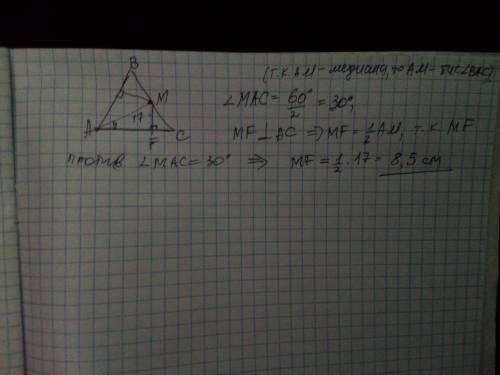 B
(т.к. AM - медиана, то AM - бис ∠BAC)
M
∠MAC = 60°/2 = 30°,
A 17 C
F
MF ⊥ AC ⇒ MF = 1/2 AM, т.к. MF
против ∠MAC = 30° ⇒ MF = 1/2 · 17 = 8,5 см